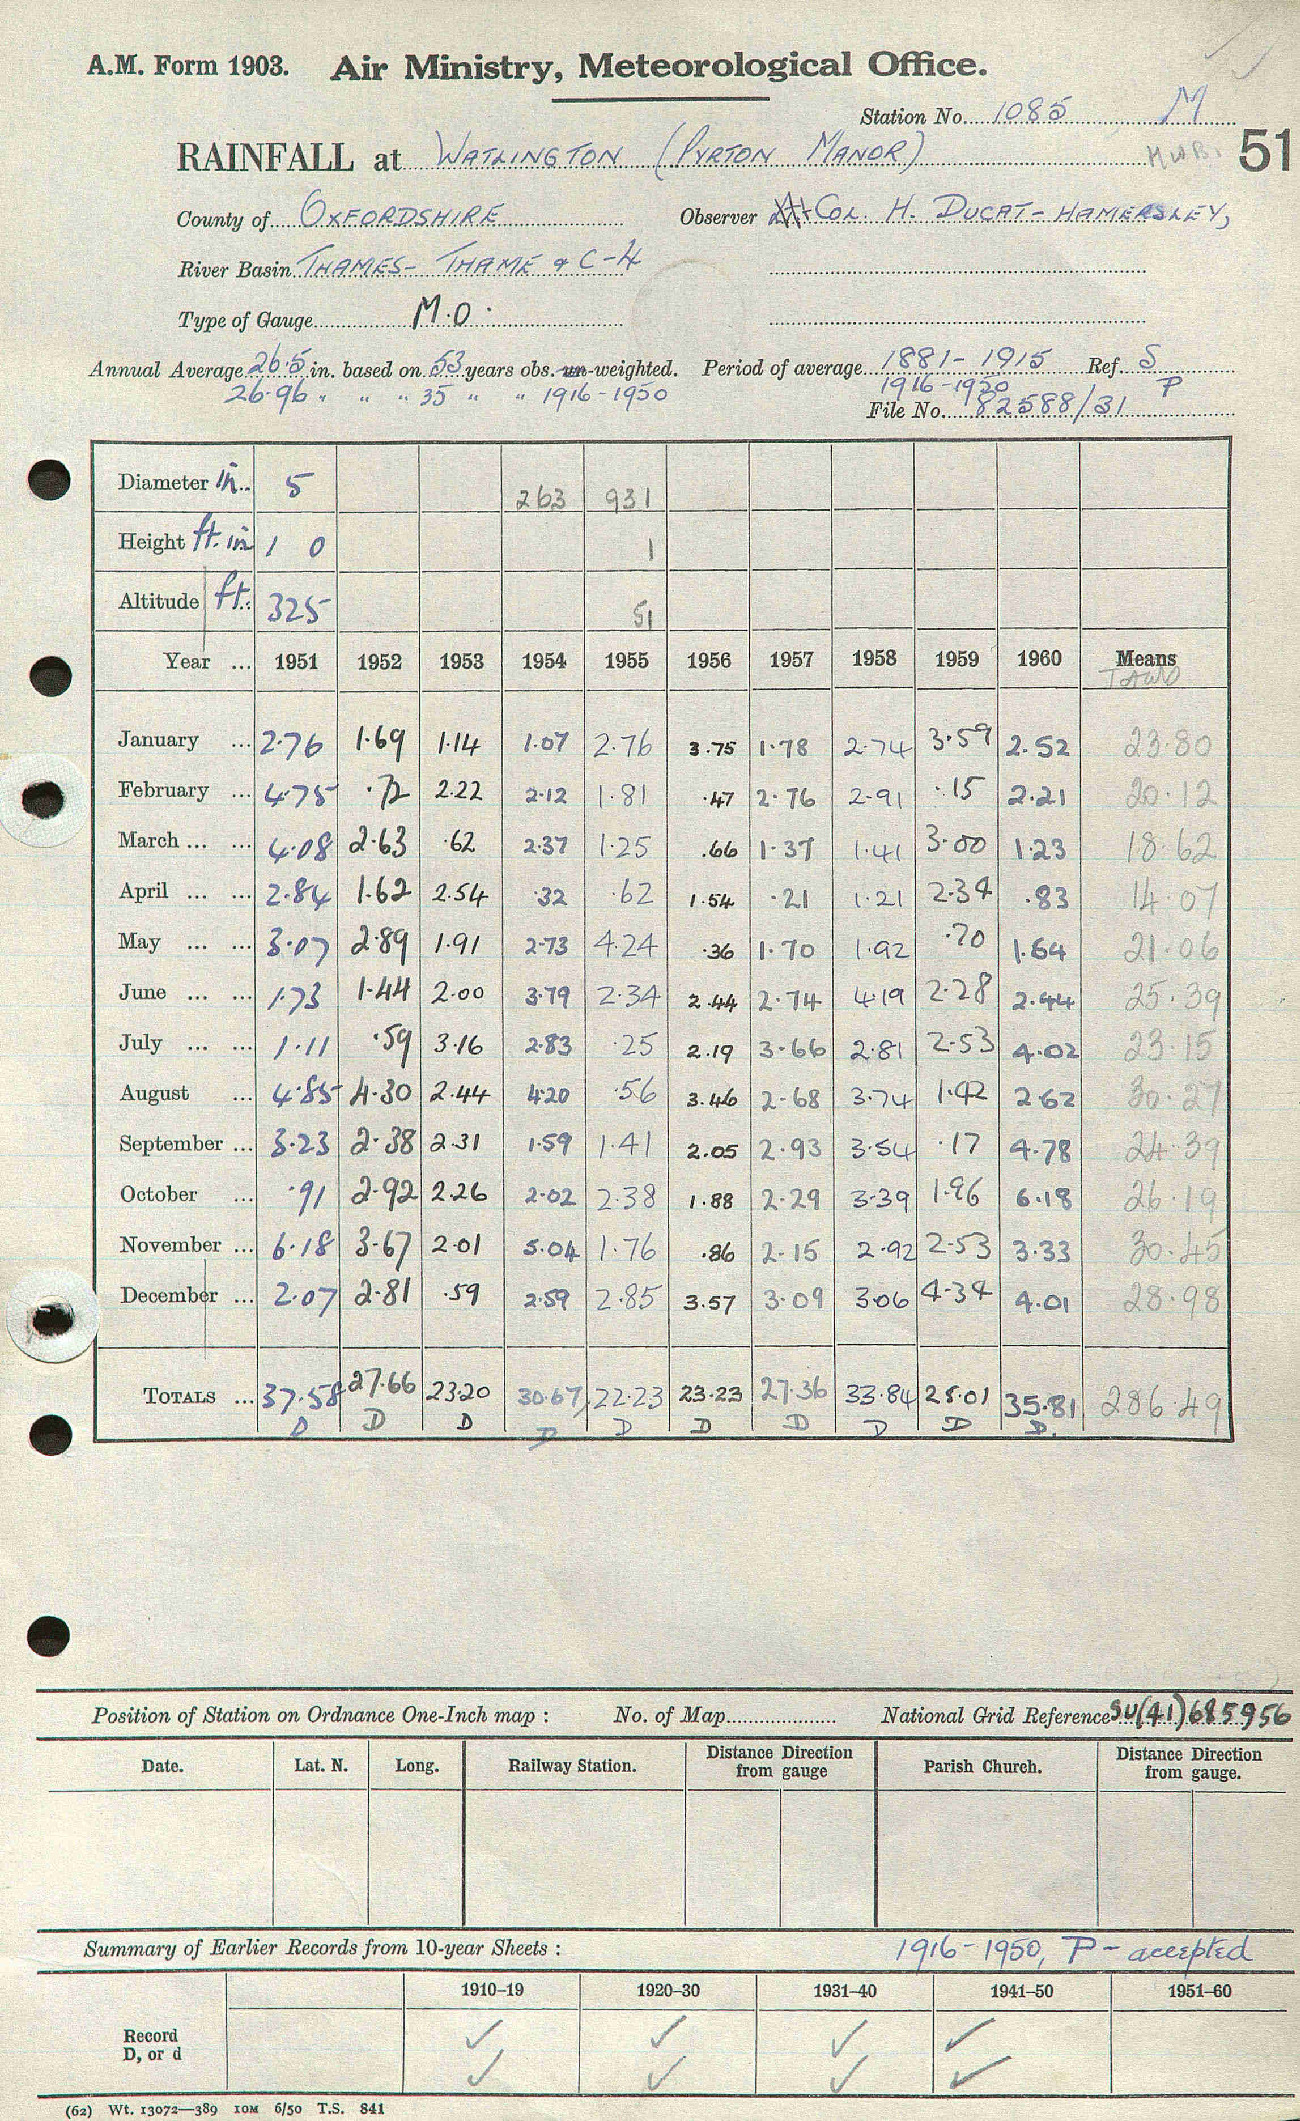 A.M. Form 1903. Air Ministry, Meteorological Office.
Station No. 1085 M
RAINFALL at WATLINGTON (PYRTON MANOR) 51
County of OXFORDSHIRE Observer Lt Col. H. DUCAT-HAMERSLEY,
River Basin THAMES- THAME & C-4
Type of Gauge M.O.
Annual Average 26.5 in. based on 53 years obs. un-weighted. Period of average 1881-1915 Ref. S
26.96 " " " 35 " " 1916-1950 1916-1950 P
File No. 82588/31
Diameter in. 5 263 931
Height ft. in 1 0 1
Altitude ft. 325 51
Year ... 1951 1952 1953 1954 1955 1956 1957 1958 1959 1960 Means
January ... 2.76 1.69 1.14 1.07 2.76 3.75 1.78 2.74 3.59 2.52 23.80
February ... 4.75 .72 2.22 2.12 1.81 .47 2.76 2.91 .15 2.21 20.12
March ... ... 4.08 2.63 .62 2.37 1.25 .66 1.37 1.41 3.00 1.23 18.62
April ... ... 2.84 1.62 2.54 .32 .62 1.54 .21 1.21 2.34 .83 14.07
May ... ... 3.07 2.89 1.91 2.73 4.24 .36 1.70 1.92 .70 1.64 21.06
June ... ... 1.73 1.44 2.00 3.79 2.34 2.44 2.74 4.19 2.28 2.44 25.39
July ... ... 1.11 .59 3.16 2.83 .25 2.19 3.66 2.81 2.53 4.02 23.15
August ... 4.85 4.30 2.44 4.20 .56 3.46 2.68 3.74 1.42 2.62 30.27
September ... 3.23 2.38 2.31 1.59 1.41 2.05 2.93 3.54 .17 4.78 24.39
October ... .91 2.92 2.26 2.02 2.38 1.88 2.29 3.39 1.96 6.18 26.19
November ... 6.18 3.67 2.01 5.04 1.76 .86 2.15 2.92 2.53 3.33 30.45
December ... 2.07 2.81 .59 2.59 2.85 3.57 3.09 3.06 4.34 4.01 28.98
TOTALS ... 37.58 27.66 23.20 30.67 22.23 23.23 27.36 33.84 25.01 35.81 286.49
D D D D D D D D D D.
Position of Station on Ordnance One-Inch map : No. of Map National Grid Reference SU(41)685956
Date. Lat. N. Long. Railway Station. Distance Direction from gauge Parish Church. Distance Direction from gauge.
Summary of Earlier Records from 10-year Sheets : 1916-1950, P - accepted
1910-19 1920-30 1931-40 1941-50 1951-60
Record ✓ ✓ ✓ ✓
D, or d ✓ ✓ ✓ ✓
(62) Wt. 13072—389 10M 6/50 T.S. 841